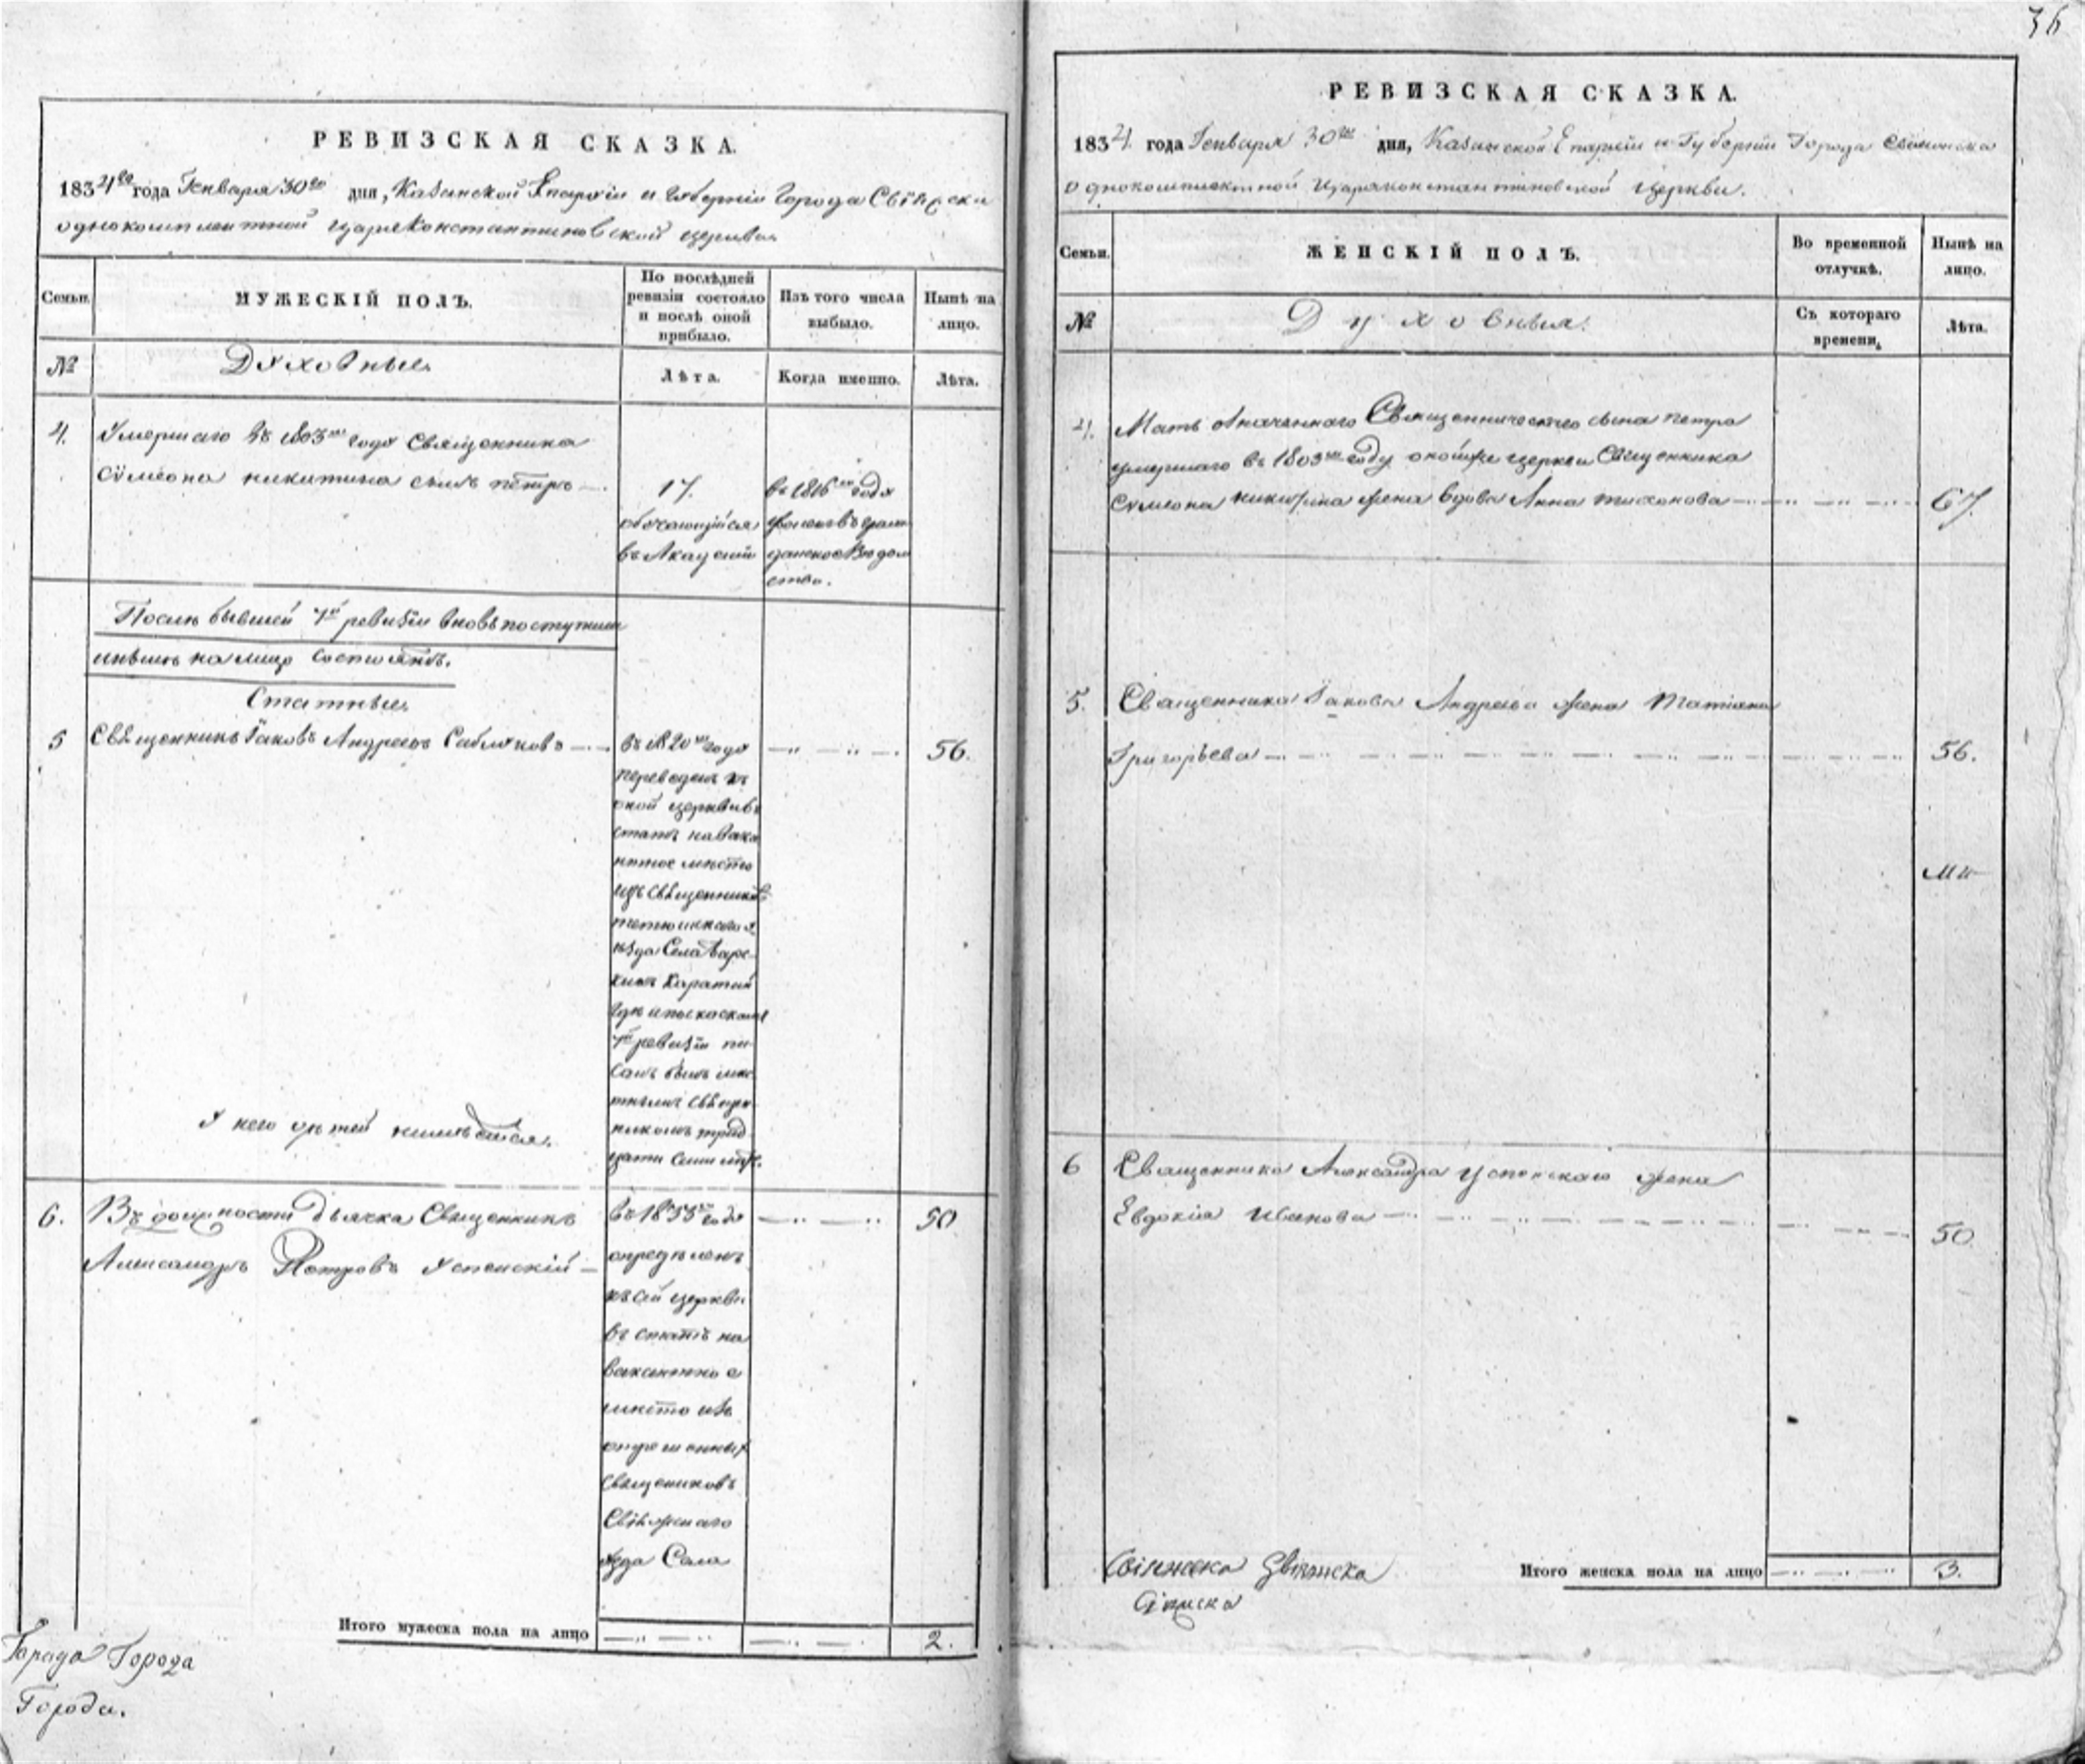 РЕВИЗСКАЯ СКАЗКА.
1834го года Генваря 30го дня, Казанской Епархіи и Губерніи города Свіяжска
однокомплектной Цареконстантиновской церкви
Семьи.
МУЖЕСКІЙ ПОЛЪ.
По послѣдней ревизіи состояло и послѣ оной прибыло.
Изъ того числа выбыло.
Нынѣ на лицо.
№
Духовные.
Лѣта.
Когда именно.
Лѣта.
4.
Умершаго въ 1803мъ года Священника
Сѵмеона Никитина сынъ Петръ
17.
обучающійся
въ Академіи
въ 1816мъ года
въ граж
данское Ведом
ство.
Послѣ бывшей 7й ревизіи вновь поступили
и нынѣ на лицо состоятъ.
Статные.
5
Священникъ Іаковъ Андреевъ Саблуковъ
въ 1820мъ года
переведенъ къ
оной церкви въ
статъ на вака
нтное мѣсто
изъ священниковъ
тетюшскаго у
ѣзда Села
гдѣ и по сказкамъ
7й ревизіи пи
санъ былъ
священ
никомъ трид
цати семи лѣтъ.
56.
У него дѣтей неимѣется.
6.
Въ должности дьячка Священникъ
Александръ Петровъ Успенскій
въ 1833мъ года
опредѣленъ
къ сей церкви
въ статъ на
вакантное
мѣсто изъ
священиковъ
Свіяжскаго
уѣзда Села
50
Итого мужеска пола на лицо
2.
Города Города
Города.
36
РЕВИЗСКАЯ СКАЗКА.
1834. года Генваря 30го дня, Казанской Епархіи и Губерніи Города Свіяжска
однокомплектной Цареконстантиновской Церкви.
Семьи.
ЖЕНСКІЙ ПОЛЪ.
Во временной отлучкѣ.
Нынѣ на лицо.
№
Духовныя.
Съ котораго времени.
Лѣта.
4.
Мать означеннаго Священническаго сына Петра
умершаго въ 1803мъ году оной же церкви Священника
Сѵмеона Никитина жена вдова Анна Тихонова
67.
5.
Священника Іакова Андреева жена Татіана
Григорьева
56.
6
Священника Александра Успенскаго жена
Евдокіа Иванова
50
Свіяжска Свіяжска
Итого женска пола на лицо
3.